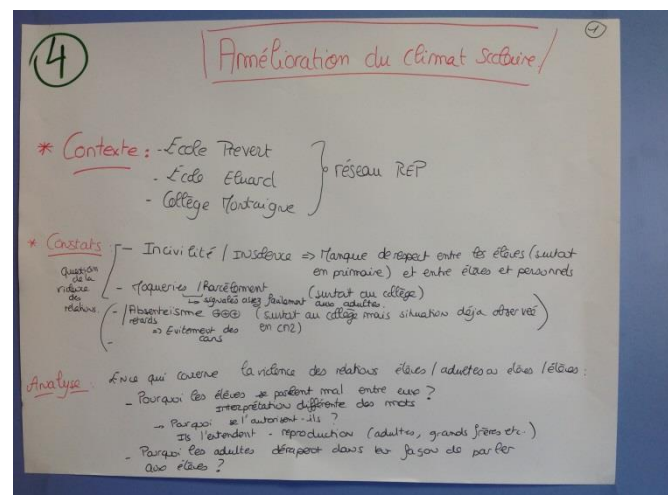 4
1
Amélioration du climat scolaire
* Contexte : - Ecole Prevert
- Ecole Eluard
- Collège Montaigne
réseau REP
* Constats : - Incivilité / Insolence => Manque de respect entre les élèves (surtout
en primaire) et entre élèves et personnels
Question
de la
violence
des
relations.
- Moqueries / Harcèlement (surtout au collège)
↳ signalés assez facilement aux adultes.
- /Absenteïsme ⊕⊕⊕ (surtout au collège mais situation déja observée
retards en CM2)
=> Evitement des
cours
-
Analyse : En ce qui concerne la violence des relations élèves / adultes ou élèves / élèves :
- Pourquoi les élèves se parlent mal entre eux ?
interprétation différente des mots
→ Pourquoi se l'autorisent-ils ?
Ils l'entendent - reproduction (adultes, grands frères etc.)
- Pourquoi les adultes dérapent dans leur façon de parler
aux élèves ?